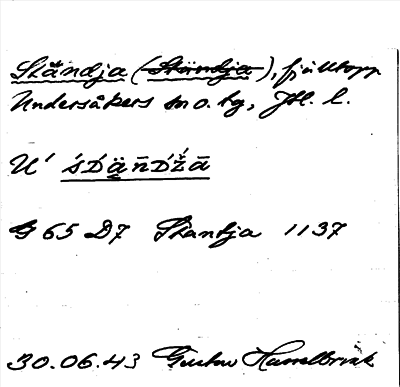 Ståndja (Ståndja), fjälltopp
Undersåkers sn o. tg, Jtl. l.
U'
G 65 D7 Stantja 1137
30.06.43 Gustav Hasselbrink